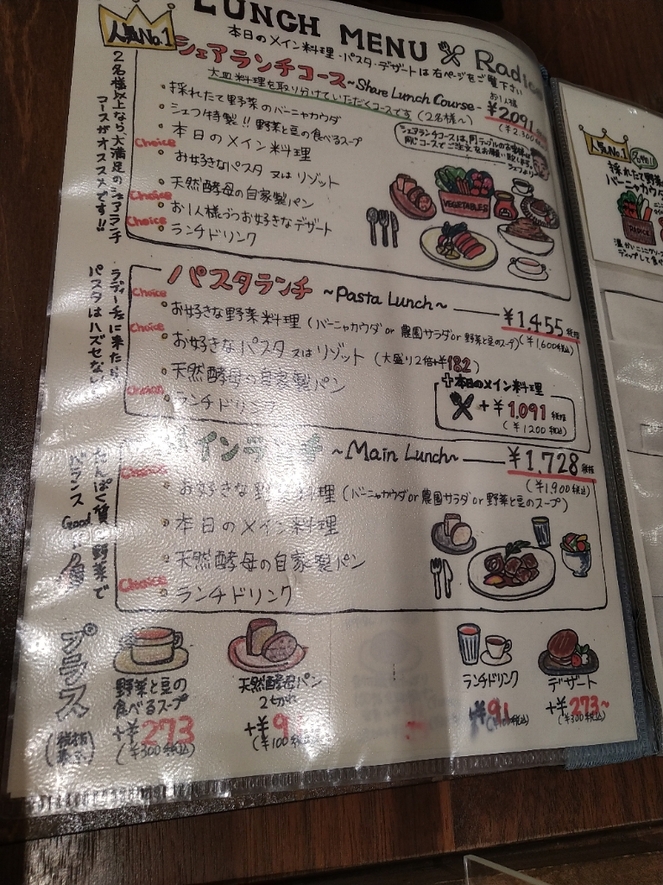 LUNCH MENU
本日のメイン料理・パスタ・デザートは右ページをご覧下さい
人気No.1
シェアランチコース ~Share Lunch Course~
お1人様
¥2091
大皿料理を取り分けていただくコースです(2名様~)
2名様以上なら、大満足のシェアランチ
コースがオススメです!!
採れたて野菜のバーニャカウダ
シェフ特製!!野菜と豆の食べるスープ
本日のメイン料理
Choice
お好きなパスタ又はリゾット
天然酵母の自家製パン
Choice
お1人様ずつお好きなデザート
Choice
ランチドリンク
シェアランチコースは、同テーブルのお客様は
同じコースでご注文をお願い致します。
VEGETABLES
パスタランチ ~Pasta Lunch~ ¥1,455 税抜
(¥1,600税込)
ラディーチェに来たら
パスタはハズセない
Choice
お好きな野菜料理(バーニャカウダor農園サラダor野菜と豆のスープ)
Choice
お好きなパスタ又はリゾット(大盛り2倍+¥182)
天然酵母の自家製パン
Choice
ランチドリンク
+本日のメイン料理
+¥1,091 税抜
(¥1200税込)
メインランチ ~Main Lunch~ ¥1,728 税抜
(¥1,900税込)
たんぱく質と野菜で
バランスGood
Choice
お好きな野菜料理(バーニャカウダor農園サラダor野菜と豆のスープ)
本日のメイン料理
天然酵母の自家製パン
Choice
ランチドリンク
プラス
野菜と豆の
食べるスープ
+¥273
(¥300税込)
天然酵母パン
2ヶ
+¥9
(¥100税込)
ランチドリンク
+¥91
デザート
+¥273~
(¥300税込)
人気No.1
採れたて野菜
バーニャカウダ